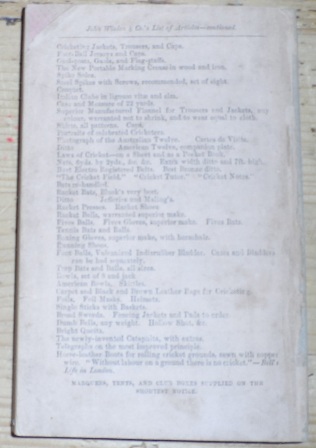 John Wisden & Co.'s List of Articles—continued.
Cricketing Jackets, Trousers, and Caps.
Foot-Ball Jerseys and Caps.
and Flag-staffs.
The New Portable Marking Downs in wood and iron.
Spike Soles.
Steel Spikes with Screws, recommended, set of eight.
Croquet.
Indian Clubs in lignum vitæ and elm.
Case and Measure of 22 yards.
Superior Manufactured Flannel for Trousers and Jackets, any
colour, warranted not to shrink, and to wear equal to cloth.
patterns.
Portraits of celebrated Cricketers.
Photograph of the Australian Twelve. Carte de Visite.
Ditto American Twelve, companion plate.
Laws of Cricket—on a Sheet and as a Pocket Book.
Nets, 8yds. by
Best Horses Engraved
"The Cricket Field," "Cricket Tutor," "Cricket Notes."
Bats re-handled.
Racket Bats, very best.
Ditto Jefferies and Maling's.
Racket Presses. Racket Shoes.
Racket Balls, warranted superior make.
Fives Balls. Fives Gloves, superior make. Fives Bats.
Tennis Bats and Balls.
Boxing Gloves, superior make, with
Running Shoes.
Foot Balls, Vulcanized Indiarubber Bladder. Cases and Bladders
can be had separately.
Trap Bats and Balls, all sizes.
Bowls, set of 9 and jack.
American Bowls. Skittles.
Carpet and Black and Brown Leather Bags for Cricketing.
Foils. Foil Masks. Helmets.
Single Sticks with Baskets.
Broad Swords. Fencing Jackets and Pads to order.
Dumb Bells, any weight. Hollow Shot, &c.
Bright Quoits.
The newly-invented Catapulta, with extras.
Telegraphs on the most improved principle.
Horse-leather Boots for rolling cricket grounds, sewn with copper
wire. "Without labour on a ground there is no cricket."—Bell's
Life in London.
MARQUEES, TENTS, AND CLUB BOXES SUPPLIED ON THE
SHORTEST NOTICE.